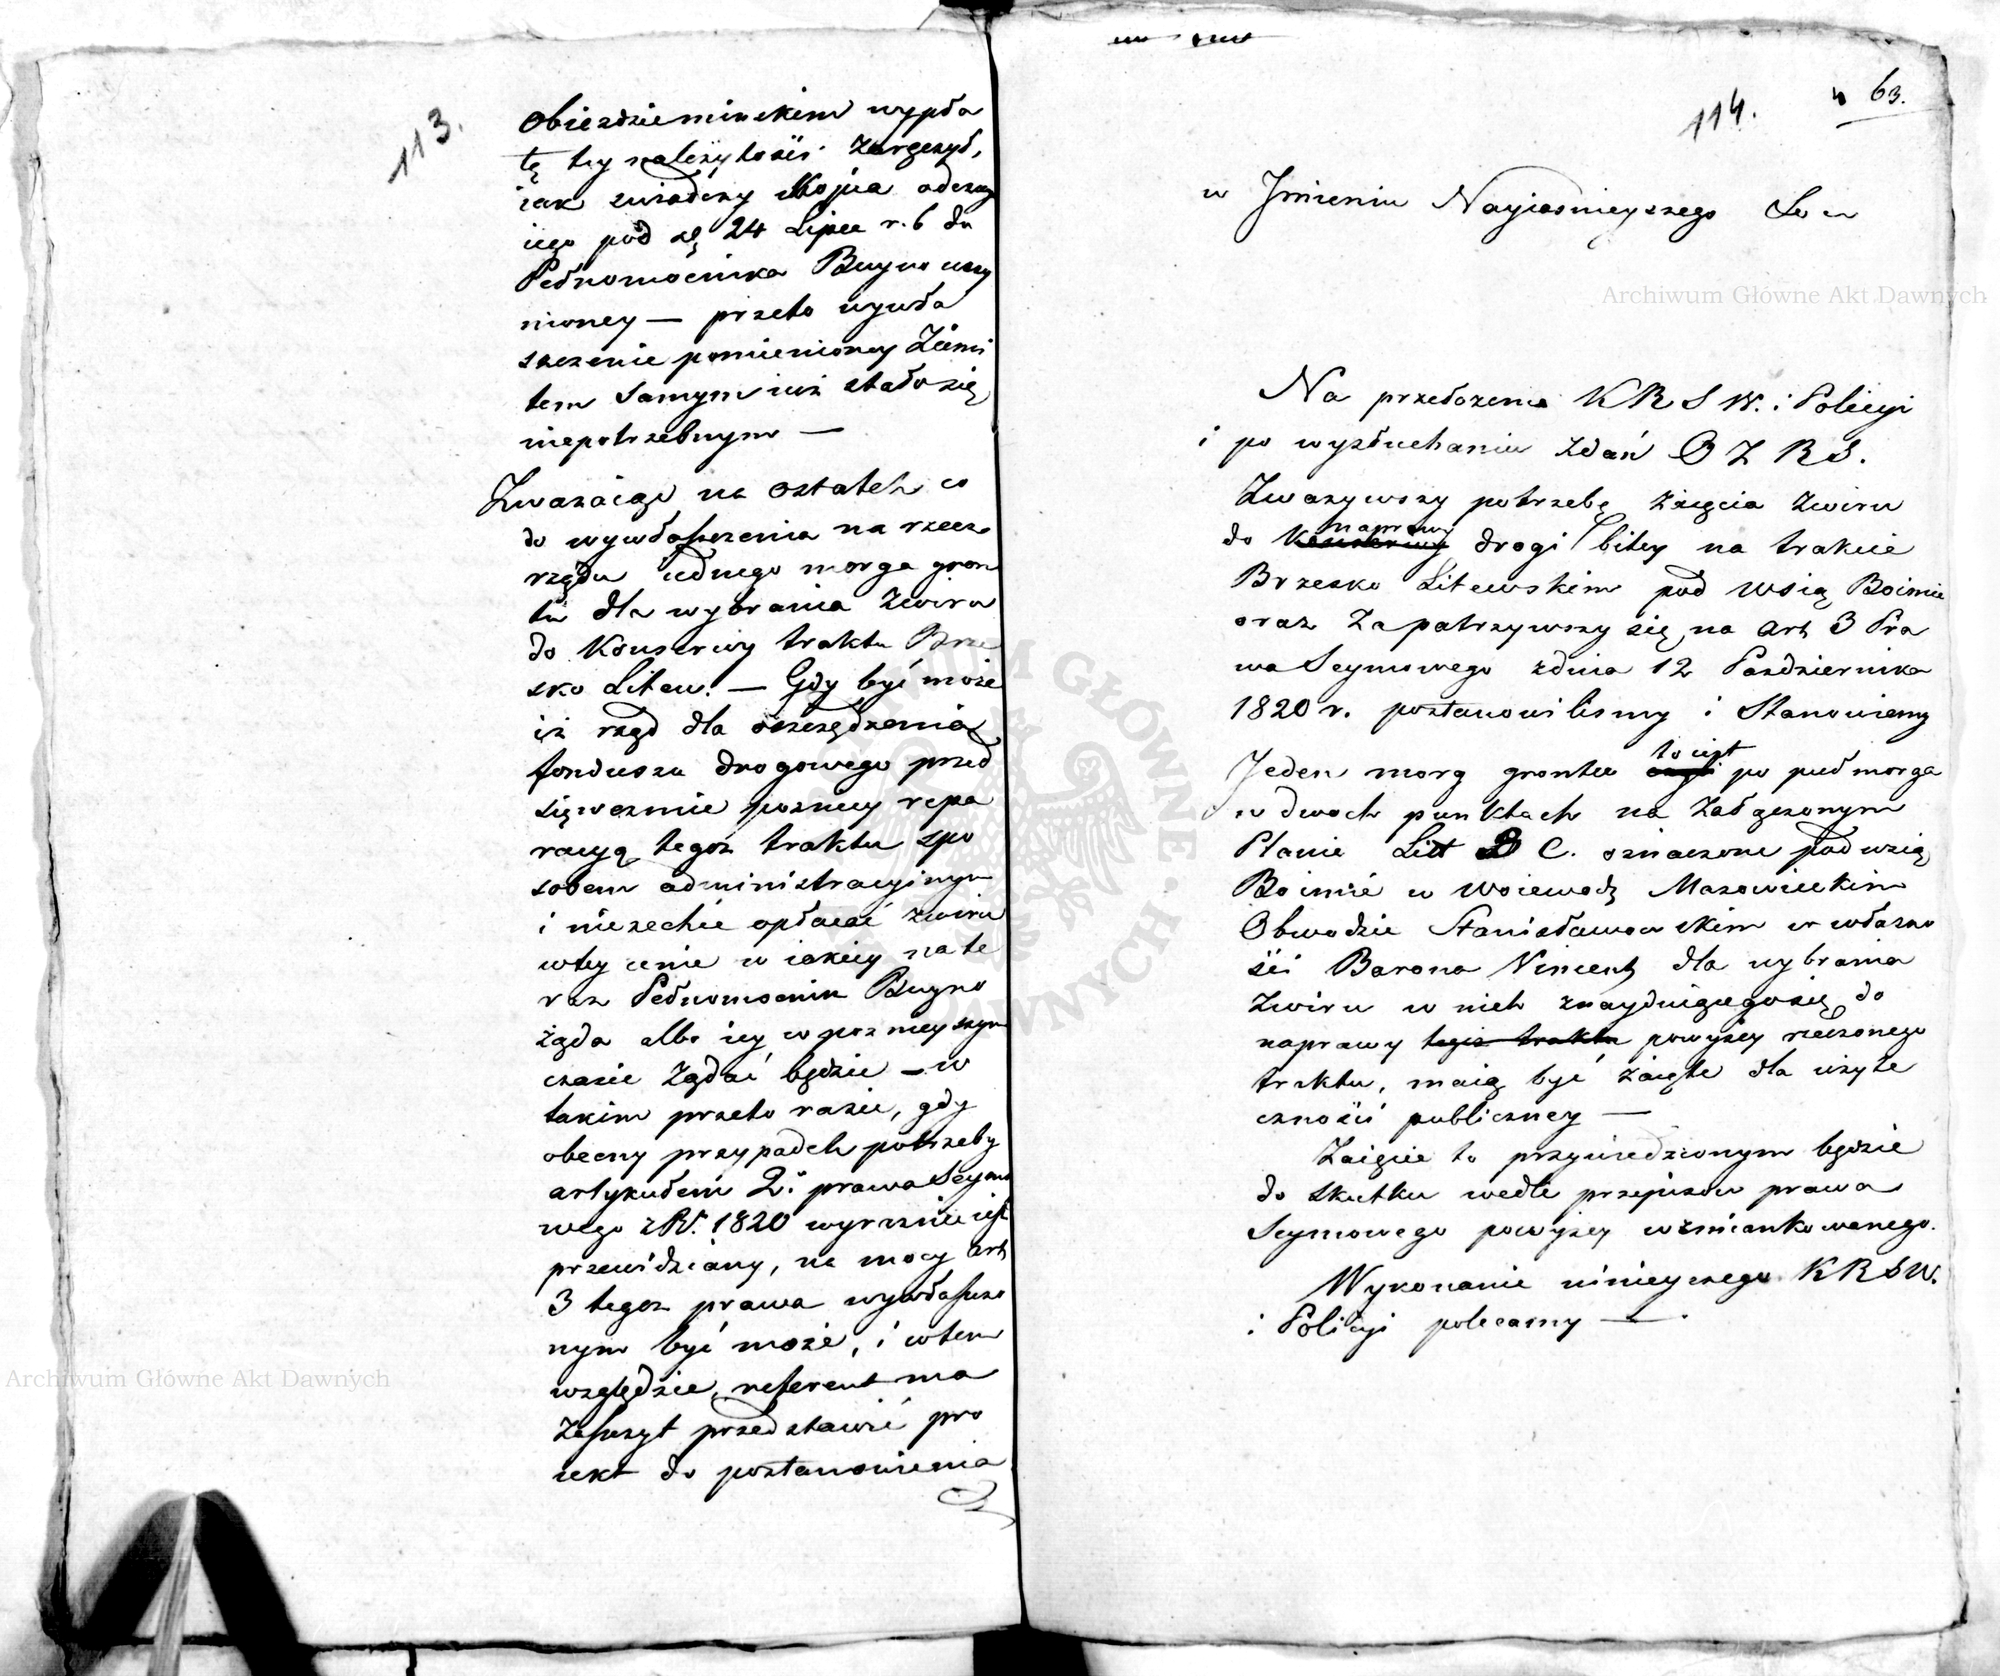 113.
Obiezdzieminskim wypła
tę tey należytości zaręczył,
iak świadczy kopia odezwy
iego pod d. 24 Lipca r. b do
Pełnomocnika Buyno uczy
nioney — przeto wywła
szczenie pomienioney Ziemi
tem samym iuż stało się
niepotrzebnym —
Zważaiąc na ostatek co
do wywłaszczenia na rzecz
rządu iednego morga gron
tu dla wybrania żwiru
do konserwy traktu Brze
sko Litew. — Gdy być może
iż rząd dla oszczędzenia
funduszu drogowego przed
sięweźmie pozniey repa
racyą tegoż traktu spo
sobem administracyinym
i niezechce opłacać żwiru
wtey cenie w iakiey na te
raz Pełnomocnik Buyno
żąda albo iey w pozniejszym
czasie żądać będzie — w
takim przeto razie, gdy
obecny przypadek potrzeby
artykułem 2. prawa Seymo
wego z R. 1820 wyraznie iest
przewidziany, na mocy art
3 tegoż prawa wywłaszczo
nym być może, i wtem
względzie, referent ma
zaszczyt przedstawić pro
iekt do postanowienia
114.
4 63.
w Imieniu Nayiasnieyszego
Na przełożenie K R S W. i Policyi
i po wysłuchaniu zdań O Z R S.
Zważywszy potrzebę zaięcia żwiru
naprawy
do konserwy drogi bitey na trakcie
Brzesko Litewskim pod wsią Boimie
oraz zapatrzywszy się na art 3 Pra
wa Seymowego z dnia 12 Pazdziernika
1820 r. postanowilismy i Stanowiemy
to iest
Jeden morg grontu po puł morga
w dwoch punktach na załączonym
Planie Litt B C. oznaczone pod wsią
Boimie w Woiewodz Mazowieckim
Obwodzie Stanisławowskim w własno
ści Barona Vincenty dla wybrania
żwiru w nich znayduiącego się do
naprawy tegoż traktu powyżey rzeczonego
traktu, maią być zaięte dla użyte
czności publiczney —
Zaięcie to przywiedzionym będzie
do skutku wedle przepisów prawa
Seymowego powyżey wzmiankowanego.
Wykonanie ninieyszego K R S W.
i Policyi polecamy —
Archiwum Główne Akt Dawnych
Archiwum Główne Akt Dawnych